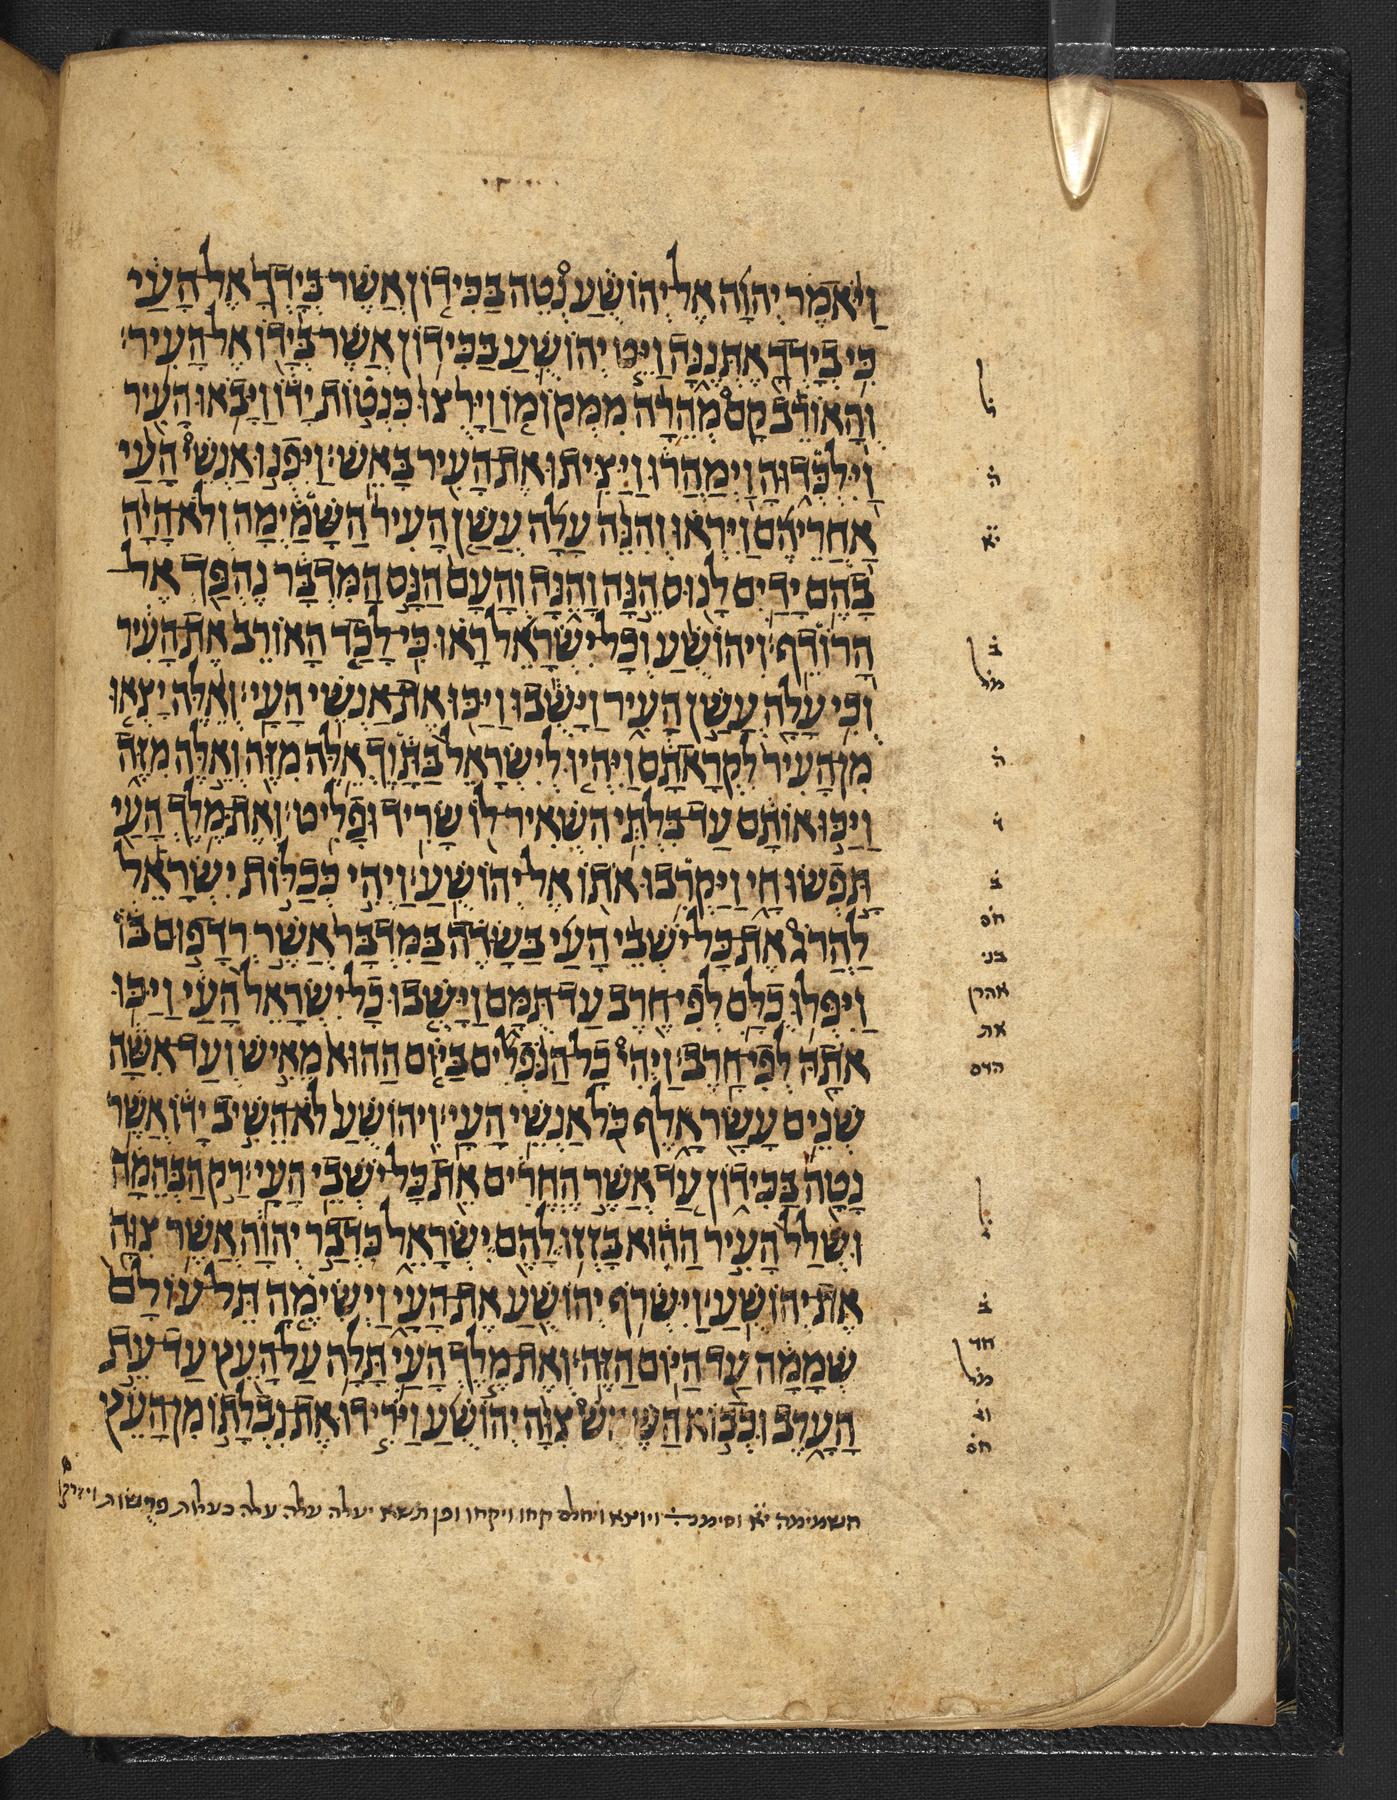 ויאמר יהוה אל יהושע נטה בכידון אשר בידך אל העי
כי בידך אתננה ויט יהושע בכידון אשר בידו אל העיר׃
והאורב קם מהרה ממקומו וירצו כנטות ידו ויבאו העיר
ל
וילכדוה וימהרו ויציתו את העיר באש׃ ויפנו אנשי העי
ה
אחריהם ויראו והנה עלה עשן העיר השמימה ולא היה
יא
בהם ידים לנוס הנה והנה והעם הנס המדבר נהפך אל
הרודף׃ ויהושע וכל ישראל ראו כי לכד האורב את העיר
ב
מל
וכי עלה עשן העיר וישבו ויכו את אנשי העי׃ ואלה יצאו
מן העיר לקראתם ויהיו לישראל בתוך אלה מזה ואלה מזה
ה
ויכו אותם עד בלתי השאיר לו שריד ופליט׃ ואת מלך העי
תפשו חי ויקרבו אתו אל יהושע׃ ויהי ככלות ישראל
ב
חס
להרג את כל ישבי העי בשדה במדבר אשר רדפום בו
בני
ויפלו כלם לפי חרב עד תמם וישבו כל ישראל העי ויכו
אהרן
את
אתה לפי חרב׃ ויהי כל הנפלים ביום ההוא מאיש ועד אשה
הדם
שנים עשר אלף כל אנשי העי׃ ויהושע לא השיב ידו אשר
נטה בכידון עד אשר החרים את כל ישבי העי׃ רק הבהמה
ל
ושלל העיר ההוא בזזו להם ישראל כדבר יהוה אשר צוה
את יהושע׃ וישרף יהושע את העי וישימה תל עולם
ב
שממה עד היום הזה׃ ואת מלך העי תלה על העץ עד עת
חד
מל
הערב וכבוא השמש צוה יהושע וירידו את נבלתו מן העץ
וג
חס
השמימה יא וסימנ ויוצא ויחלם קחו ויקחו ופן תשא יעלה עלה עלה כעלות פרשות